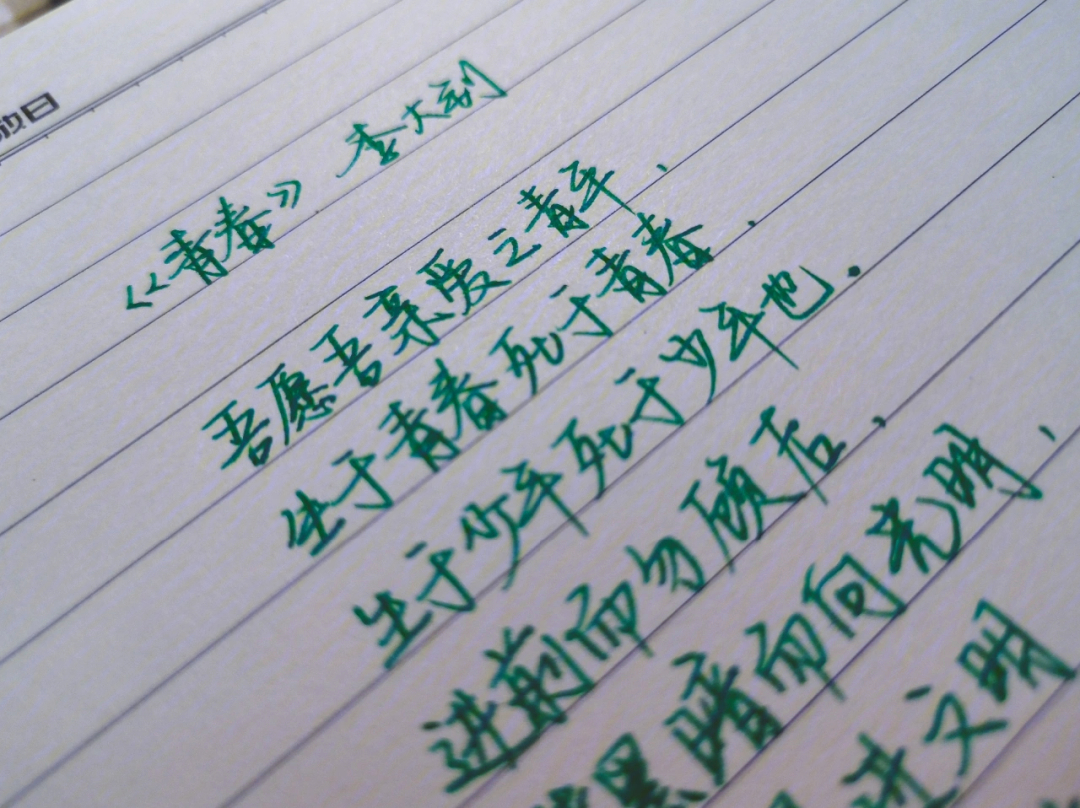 放日
《青春》 李大钊
吾愿吾亲爱之青年、
生于青春死于青春、
生于少年死于少年也.
进前而勿顾后、
黑暗而向光明、
进文明